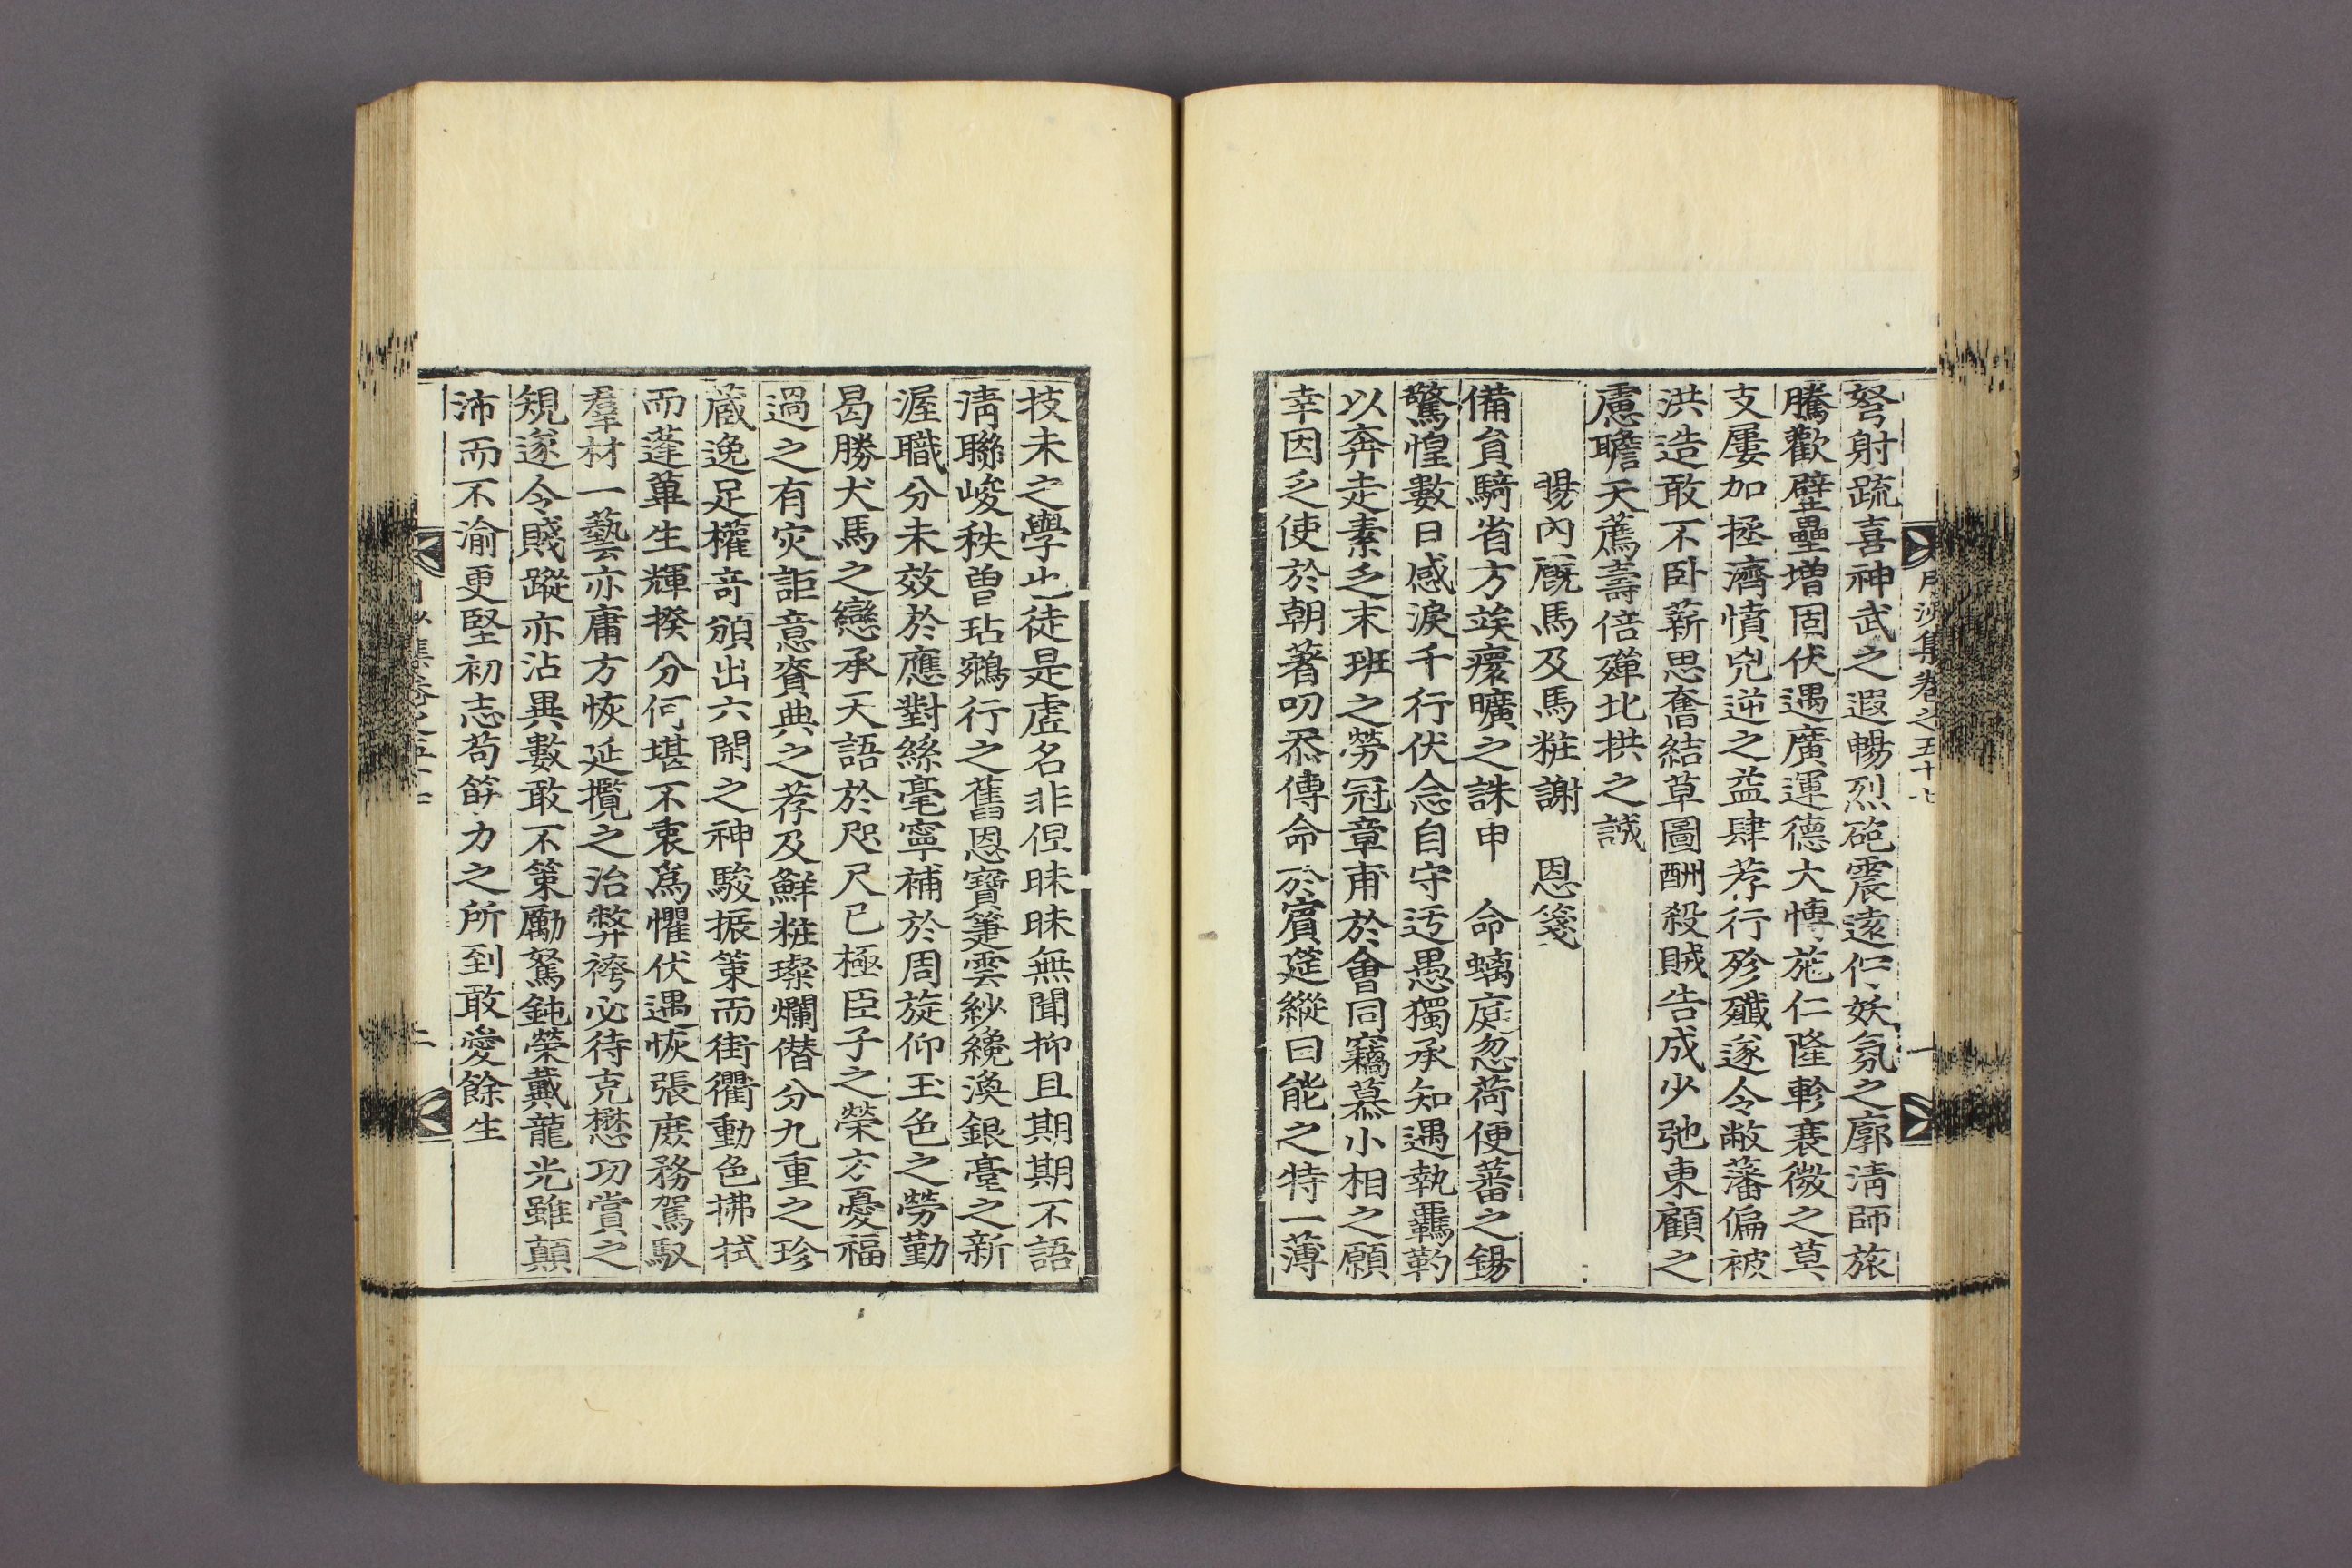 月沙集卷之五十七
一
弩射疏喜神武之遐暢烈砲震遠佇妖氛之廓淸師旅
騰歡壁壘增固伏遇廣運德大慱施仁隆軫衰微之莫
支屢加拯濟憤兇逆之益肆荐行殄殲遂令敝藩偏被
洪造敢不卧薪思奮結草圖酬殺賊告成少弛東顧之
慮瞻天薦壽倍殫北拱之誠
賜內廐馬及馬粧謝 恩箋
備貟騎省方竢瘝曠之誅申 命螭庭忽荷便蕃之錫
驚惶數日感淚千行伏念自守迃愚獨承知遇執羈靮
以奔走素乏末班之勞冠章甫於會同竊慕小相之願
幸因乏使於朝著叨忝傳命於賓筵縱曰能之特一薄
技未之學也徒是虛名非但昧昧無聞抑且期期不語
淸聯峻秩曾玷鵷行之舊恩寶箑雲紗纔渙銀臺之新
渥職分未效於應對絲毫寧補於周旋仰玉色之勞勤
曷勝犬馬之戀承天語於咫尺已極臣子之榮方憂福
過之有灾詎意賚典之荐及鮮粧璨爛僣分九重之珍
葴逸足權竒頒出六閑之神駿振策而街衢動色拂拭
而蓬蓽生輝揆分何堪不衷爲懼伏遇恢張庶務駕馭
羣材一藝亦庸方恢延攬之治弊袴必待克懋功賞之
規遂令賤蹤亦沾異數敢不策勵駑鈍榮戴龍光雖顛
沛而不渝更堅初志苟筋力之所到敢愛餘生
二